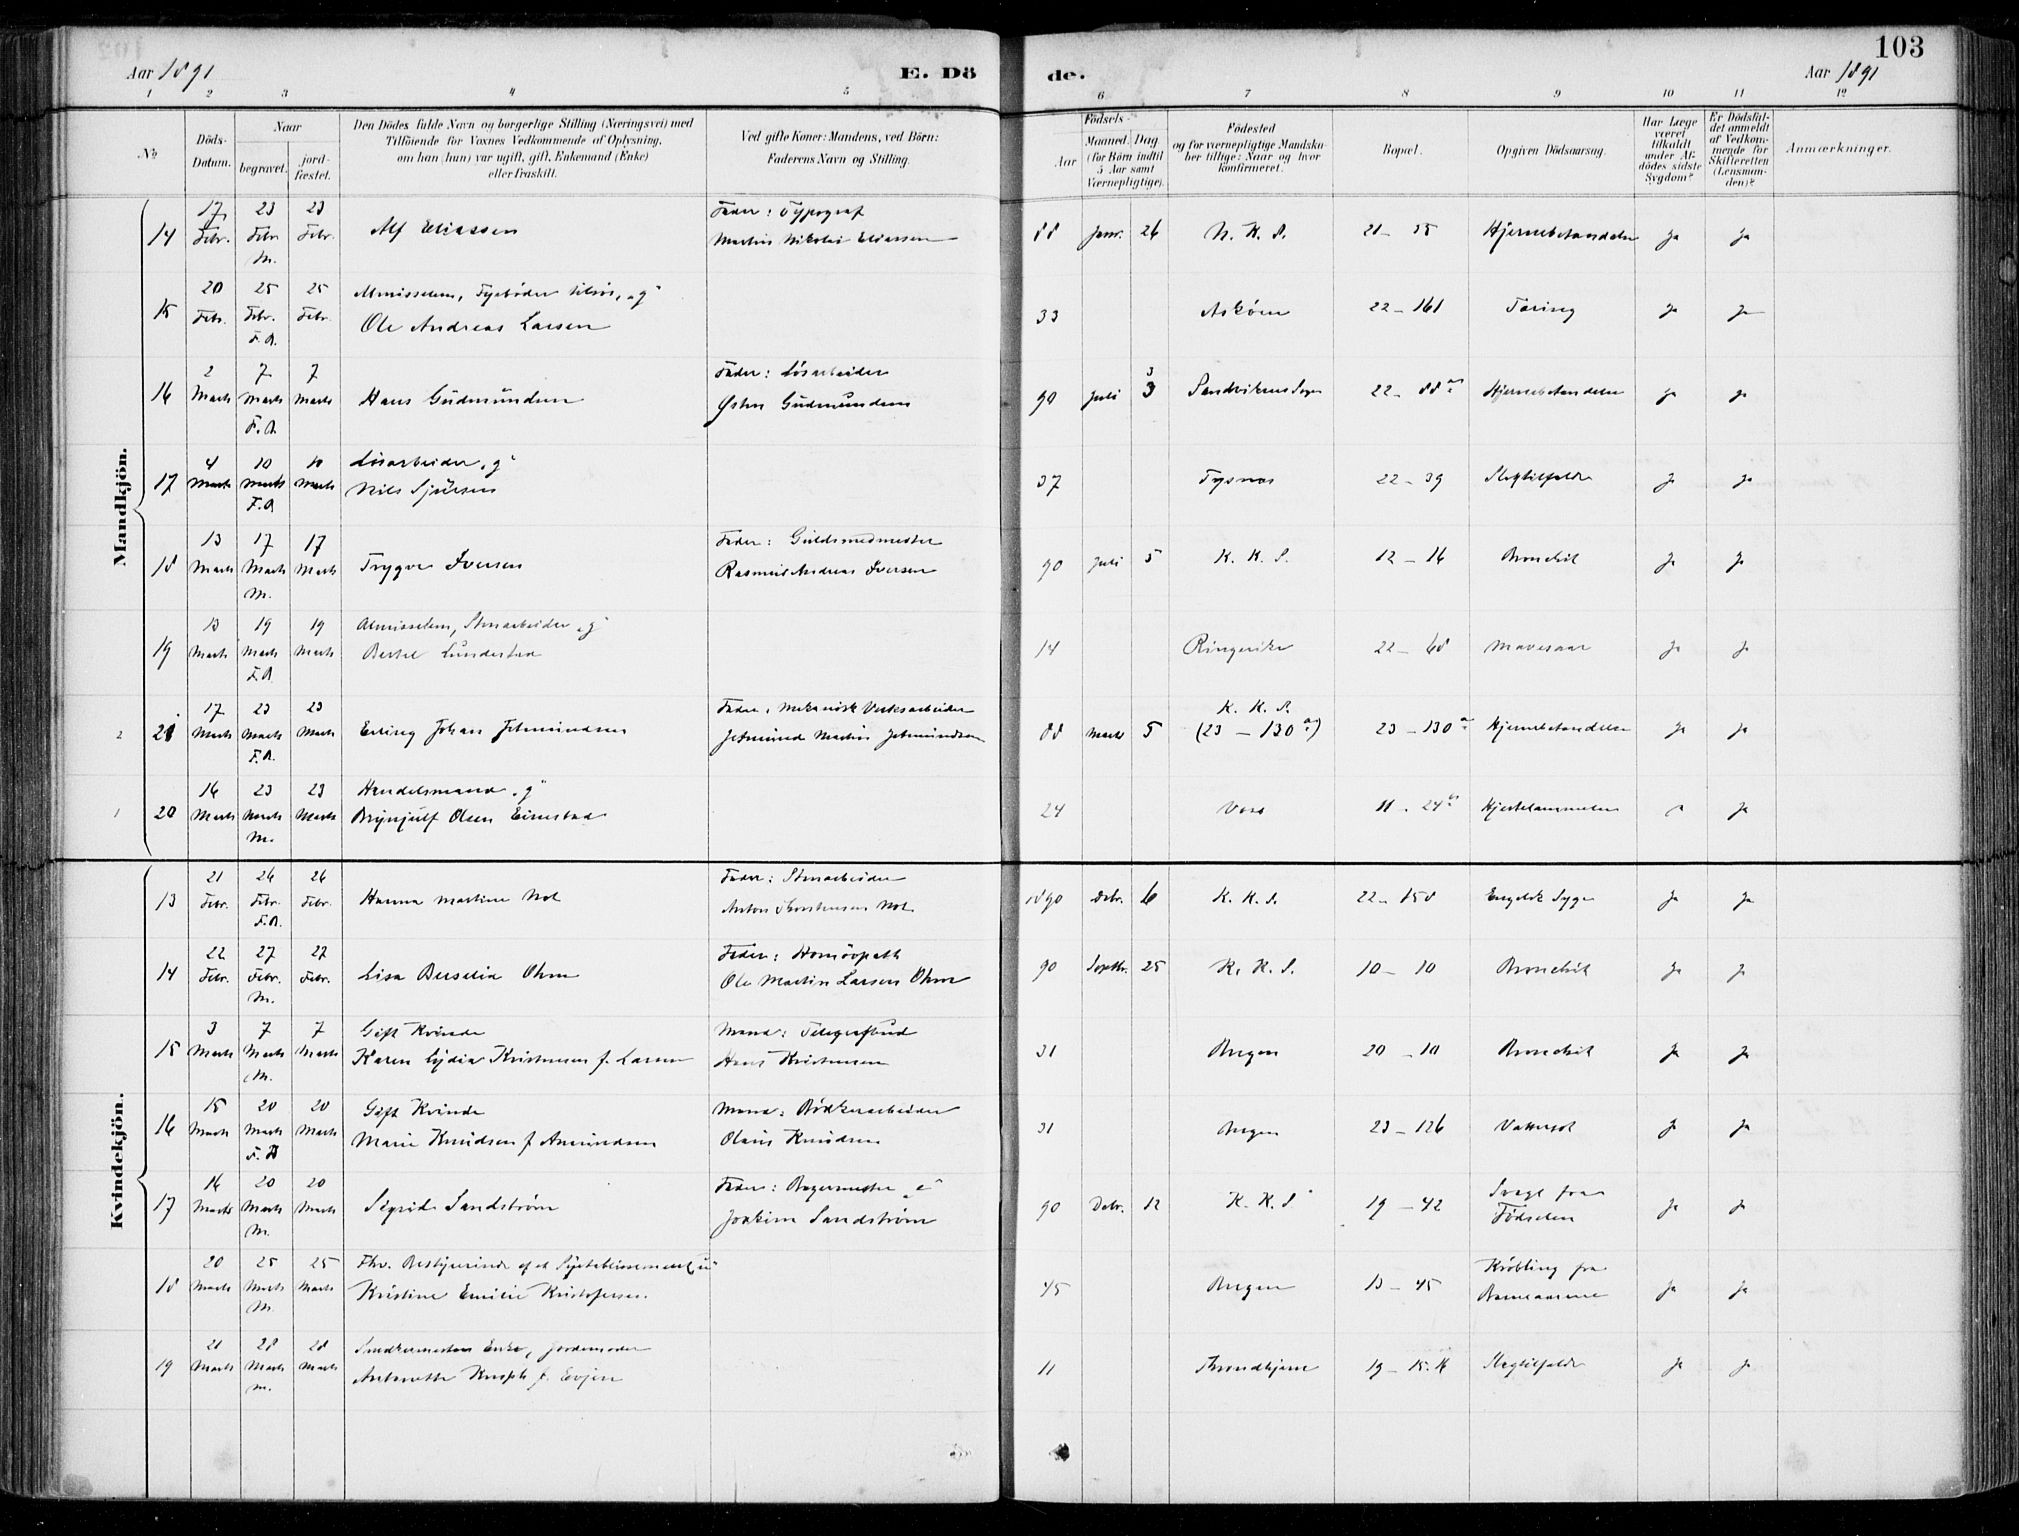 103
Aar 1891
E. Dö
de.
Aar 1891
1 2 3 4 5 6 7 8 9 10 11 12
No
Döds-Datum.
Naar
begravet.
jordfæstet.
Den Dödes fulde Navn og borgerlige Stilling (Næringsvei) med
Tilföiende for Voxnes Vedkommende af Oplysning,
om han (hun) var ugift, gift, Enkemand (Enke)
eller fraskilt.
Ved gifte Koner: Mandens, ved Börn:
Faderens Navn og Stilling.
Födsels-
Aar
Maaned. Dag.
(for Börn indtil
5 Aar samt
Værnepligtige).
Födested
og for værnepligtige Mandskaber tillige: Naar og hvor
konfirmeret.
Bopæl.
Opgiven Dödsaarsag.
Har Læge
været
tilkaldt
under Afdödes sidste
Sygdom?
Er Dödsfaldet anmeldt
af Vedkommende for
Skifteretten
(Lensmanden)?
Anmærkninger.
Mandkjön.
14 17 Febr. 23 Febr. M. 23 Febr. Alf Eliassen Fader: Typograf
Martin Nikolai Eliassen 88 Janr. 26 N. K. S. 21 - 35 Hjernebetændelse Ja Ja
15 20 Febr. 25 Febr. F.A. 25 Febr. Almisselem, Fyrbøder "g"
Ole Andreas Larsen 33 Askøen 22 - 161 Tæring Ja Ja
16 2 Marts 7 Marts F.A. 7 Marts Hans Gudmundsen Fader: Løsarbeider
Østen Gudmundsen 90 Juli 3 Sandvikens Sogn 22 - 88 a Hjernebetændelse Ja Ja
17 4 Marts 10 Marts F.A. 10 Marts Løsarbeider "g"
Nils Sjursen 37 Tysnæs 22 - 39 Slagtilfælde Ja Ja
18 13 Marts 17 Marts M. 17 Marts Trygve Iversen Fader: Guldsmedmester
Rasmus Andreas Iversen 90 Juli 5 K. K. S. 12 - 16 Bronchit Ja Ja
19 13 Marts 19 Marts F.A. 19 Marts Almisselem, Stenarbeider "g"
Bertel Lundestad 14 Ringerike 22 - 68 Mavesaar Ja Ja
2 21 17 Marts 23 Marts F.A. 23 Marts Erling Johan Jetmundsen Fader: Mekanisk Verksarbeider
Jetmund Martin Jetmundsen 88 Marts 5 K. K. S.
(23 - 130 a) 23 - 130 a Hjernebetændelse Ja Ja
1 20 16 Marts 23 Marts M. 23 Marts Handelsmand "g"
Brynjulf Olsen Eimstad 24 Voss 11 - 24 Hjertelammelse Ja
Kvindekjön.
13 21 Febr. 26 Febr. F.A. 26 Febr. Hanna Martine Fader: Stenarbeider
Anton Thorstensen 1890 Debr. 6 K. K. S. 22 - 158 Engelsk Syge Ja Ja
14 22 Febr. 27 Febr. M. 27 Febr. Lisa Ohm Fader: Homöopath
Ole Martin Larsen Ohm 90 Septbr. 25 K. K. S. 10 - 10 Bronchit Ja Ja
15 3 Marts 7 Marts M. 7 Marts Gift Kvinde
Karen Lydia Kristensen f. Larsen Mand: Telegrafbud
Hans Kristensen 31 Bergen 20 - 10 Bronchit Ja Ja
16 15 Marts 20 Marts F.A. 20 Marts Gift Kvinde
Marie Knudsen f. Amundsen Mand: Bødkerarbeider
Olaus Knudsen 31 Bergen 23 - 126 Vattersot Ja Ja
17 16 Marts 20 Marts M. 20 Marts Sigrid Sandstrøm Fader: Bagermester "e"
Joakim Sandstrøm 90 Debr. 12 K. K. S. 19 - 42 Svagl. fra
Fødselen Ja Ja
18 20 Marts 25 Marts M. 25 Marts Fhv. Bestyrerinde af et Syetablissement "u"
Kristine Emilie Kristofersen 45 Bergen 13 - 45 Krøbling fra
Barneaarene Ja Ja
19 21 Marts 28 Marts M. 28 Marts Snedkermesters Enke, Jordemoder
Antonette f. Evjen 11 Throndhjem 19 - 15. Slagtilfælde Ja Ja